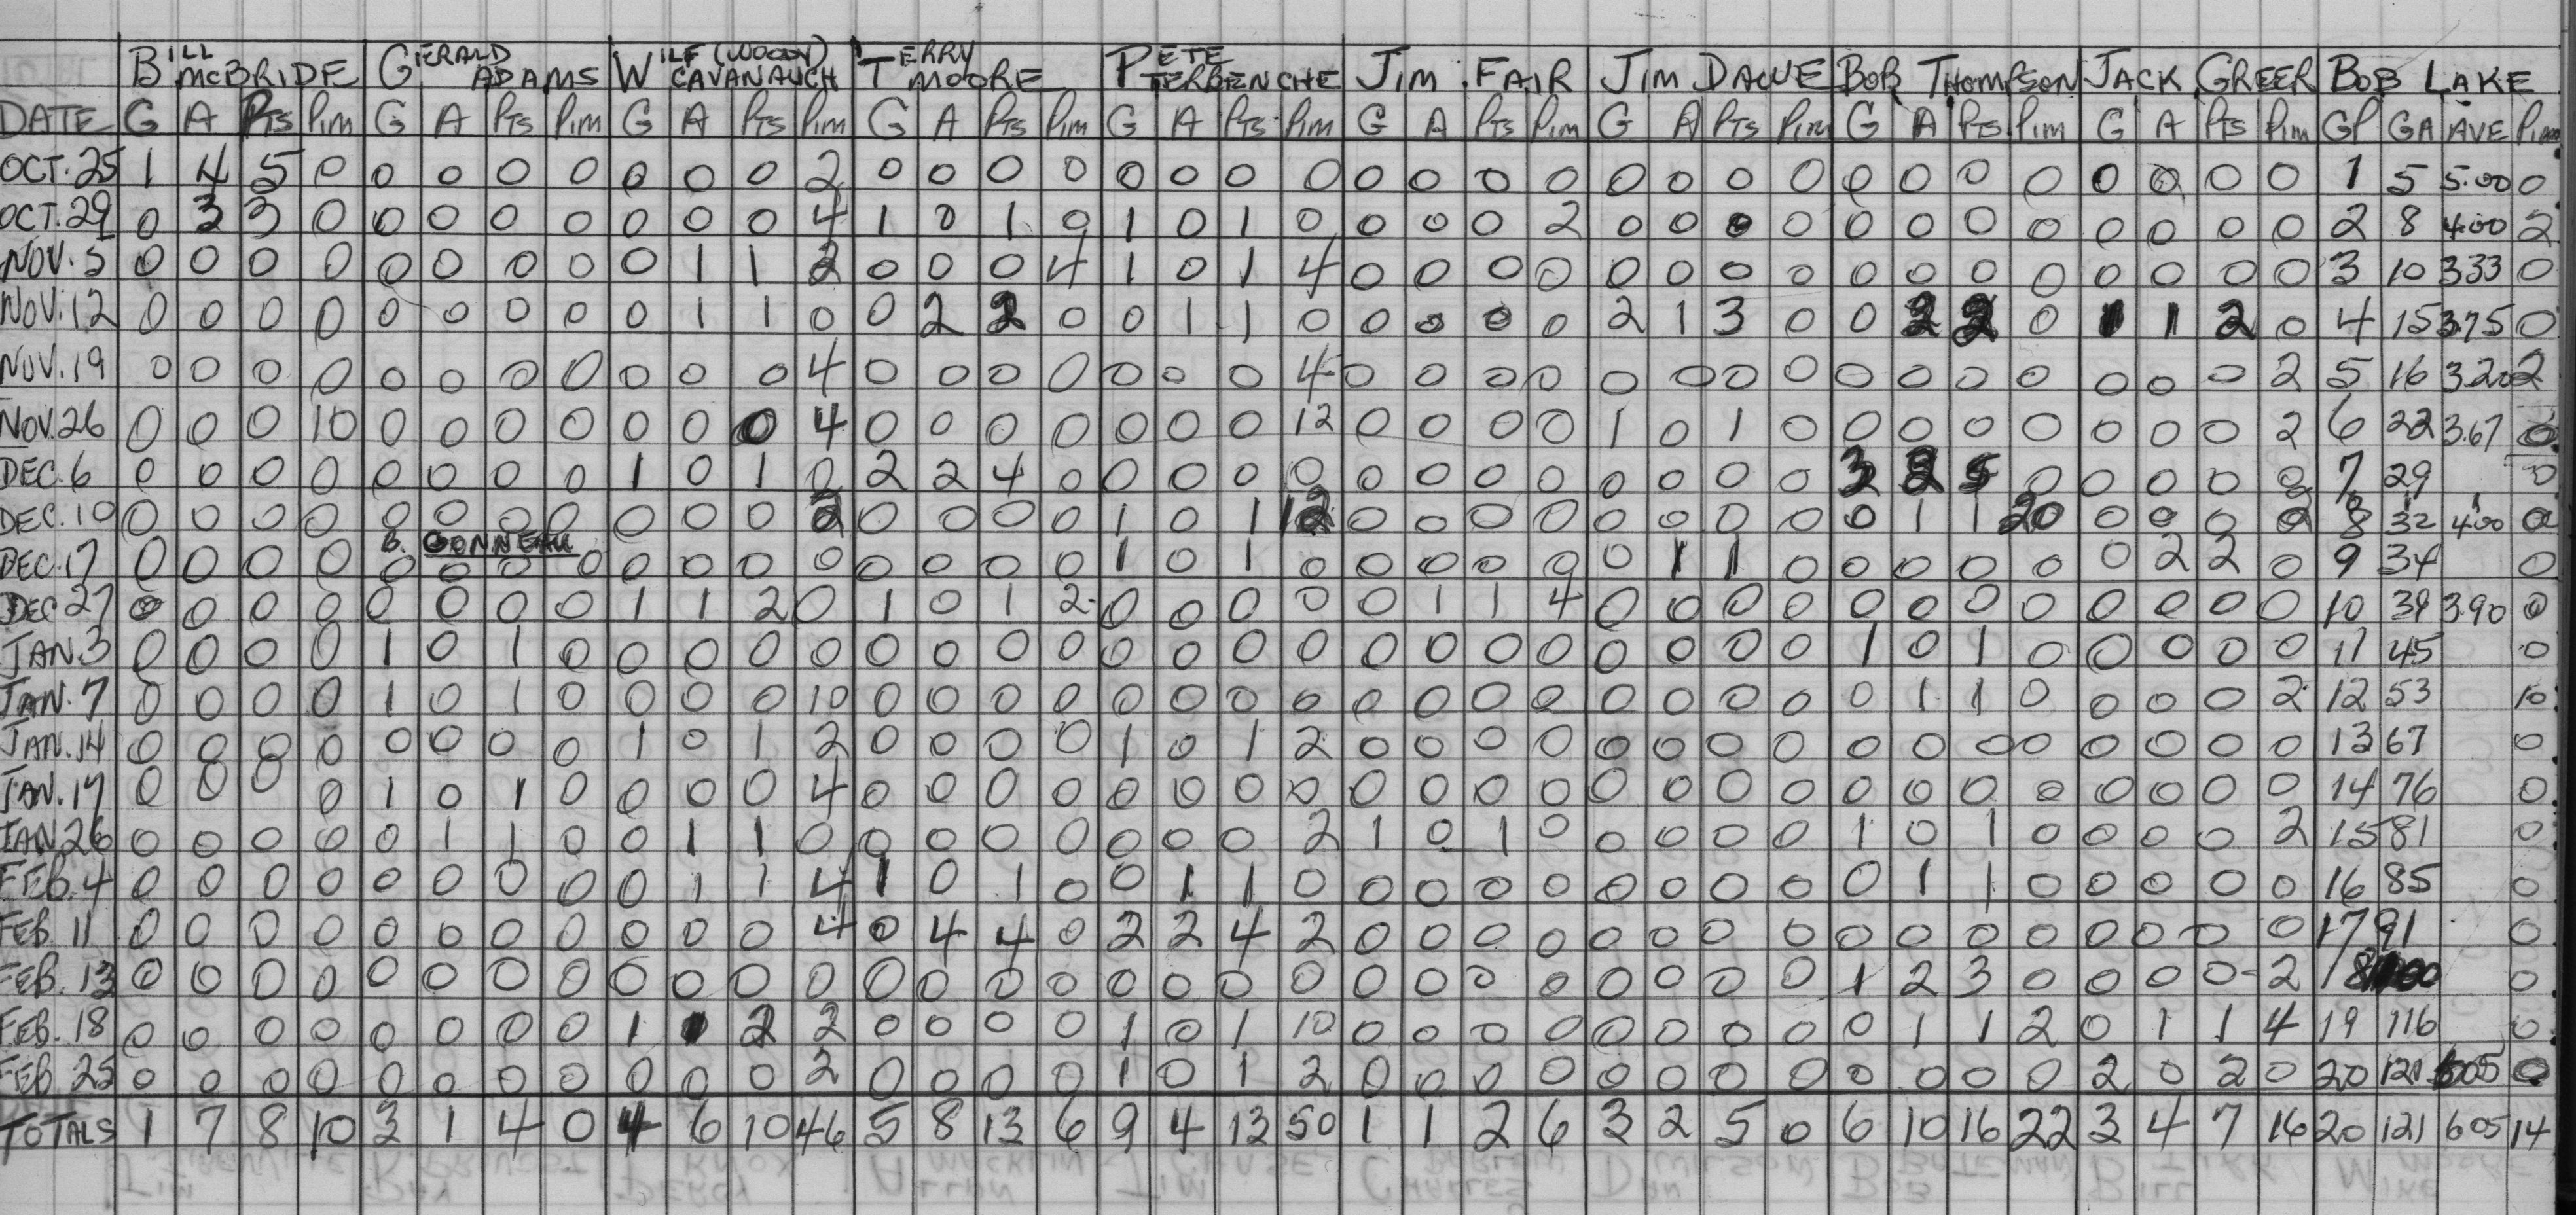 BILL McBRIDE GERALD ADAMS WILF (WOODY) CAVANAUGH TERRY MOORE PETE TERBENCHE JIM FAIR JIM DAWE BOB THOMPSON JACK GREER BOB LAKE
DATE G A PTS PIM G A PTS PIM G A PTS PIM G A PTS PIM G A PTS PIM G A PTS PIM G A PTS PIM G A PTS PIM G A PTS PIM GP GA AVE PIM
OCT. 25 1 4 5 0 0 0 0 0 0 0 0 2 0 0 0 0 0 0 0 0 0 0 0 0 0 0 0 0 0 0 0 0 0 0 0 0 1 5 5.00 0
OCT. 29 0 3 3 0 0 0 0 0 0 0 0 4 1 0 1 0 1 0 1 0 0 0 0 2 0 0 0 0 0 0 0 0 0 0 0 0 2 8 4.00 2
NOV. 5 0 0 0 0 0 0 0 0 0 1 1 2 0 0 0 4 1 0 1 4 0 0 0 0 0 0 0 0 0 0 0 0 0 0 0 0 3 10 333 0
NOV. 12 0 0 0 0 0 0 0 0 0 1 1 0 0 2 2 0 0 1 1 0 0 0 0 0 2 1 3 0 0 2 2 0 1 1 2 0 4 15 3.75 0
NOV. 19 0 0 0 0 0 0 0 0 0 0 0 4 0 0 0 0 0 0 0 4 0 0 0 0 0 0 0 0 0 0 0 0 0 0 0 2 5 16 3.20 2
NOV. 26 0 0 0 10 0 0 0 0 0 0 0 4 0 0 0 0 0 0 0 12 0 0 0 0 1 0 1 0 0 0 0 0 0 0 0 2 6 22 3.67 0
DEC. 6 0 0 0 0 0 0 0 0 1 0 1 0 2 2 4 0 0 0 0 0 0 0 0 0 0 0 0 0 3 2 5 0 0 0 0 0 7 29 0
DEC. 10 0 0 0 0 0 0 0 0 0 0 0 2 0 0 0 0 1 0 1 12 0 0 0 0 0 0 0 0 0 1 1 20 0 0 0 2 8 32 4.00 0
B. GONNEAU
DEC. 17 0 0 0 0 0 0 0 0 0 0 0 0 0 0 0 0 1 0 1 0 0 0 0 0 0 1 1 0 0 0 0 0 0 2 2 0 9 34 0
DEC 27 0 0 0 0 0 0 0 0 1 1 2 0 1 0 1 2 0 0 0 0 0 1 1 4 0 0 0 0 0 0 0 0 0 0 0 0 10 39 3.90 0
JAN. 3 0 0 0 0 1 0 1 0 0 0 0 0 0 0 0 0 0 0 0 0 0 0 0 0 0 0 0 0 1 0 1 0 0 0 0 0 11 45 0
JAN. 7 0 0 0 0 1 0 1 0 0 0 0 10 0 0 0 0 0 0 0 0 0 0 0 0 0 0 0 0 0 1 1 0 0 0 0 2 12 53 10
JAN. 14 0 0 0 0 0 0 0 0 1 0 1 2 0 0 0 0 1 0 1 2 0 0 0 0 0 0 0 0 0 0 0 0 0 0 0 0 13 67 0
JAN. 17 0 0 0 0 1 0 1 0 0 0 0 4 0 0 0 0 0 0 0 0 0 0 0 0 0 0 0 0 0 0 0 0 0 0 0 0 14 76 0
JAN. 26 0 0 0 0 0 1 1 0 0 1 1 0 0 0 0 0 0 0 0 2 1 0 1 0 0 0 0 0 1 0 1 0 0 0 0 2 15 81 0
FEB. 4 0 0 0 0 0 0 0 0 0 1 1 4 1 0 1 0 0 1 1 0 0 0 0 0 0 0 0 0 0 1 1 0 0 0 0 0 16 85 0
FEB. 11 0 0 0 0 0 0 0 0 0 0 0 4 0 4 4 0 2 2 4 2 0 0 0 0 0 0 0 0 0 0 0 0 0 0 0 0 17 91 0
FEB. 13 0 0 0 0 0 0 0 0 0 0 0 0 0 0 0 0 0 0 0 0 0 0 0 0 0 0 0 0 1 2 3 0 0 0 0 2 18 100 0
FEB. 18 0 0 0 0 0 0 0 0 1 1 2 2 0 0 0 0 1 0 1 10 0 0 0 0 0 0 0 0 0 1 1 2 0 1 1 4 19 116 0
FEB. 25 0 0 0 0 0 0 0 0 0 0 0 2 0 0 0 0 1 0 1 2 0 0 0 0 0 0 0 0 0 0 0 0 2 0 2 0 20 121 605 0
TOTALS 1 7 8 10 3 1 4 0 4 6 10 46 5 8 13 6 9 4 13 50 1 1 2 6 3 2 5 0 6 10 16 22 3 4 7 16 20 121 605 14